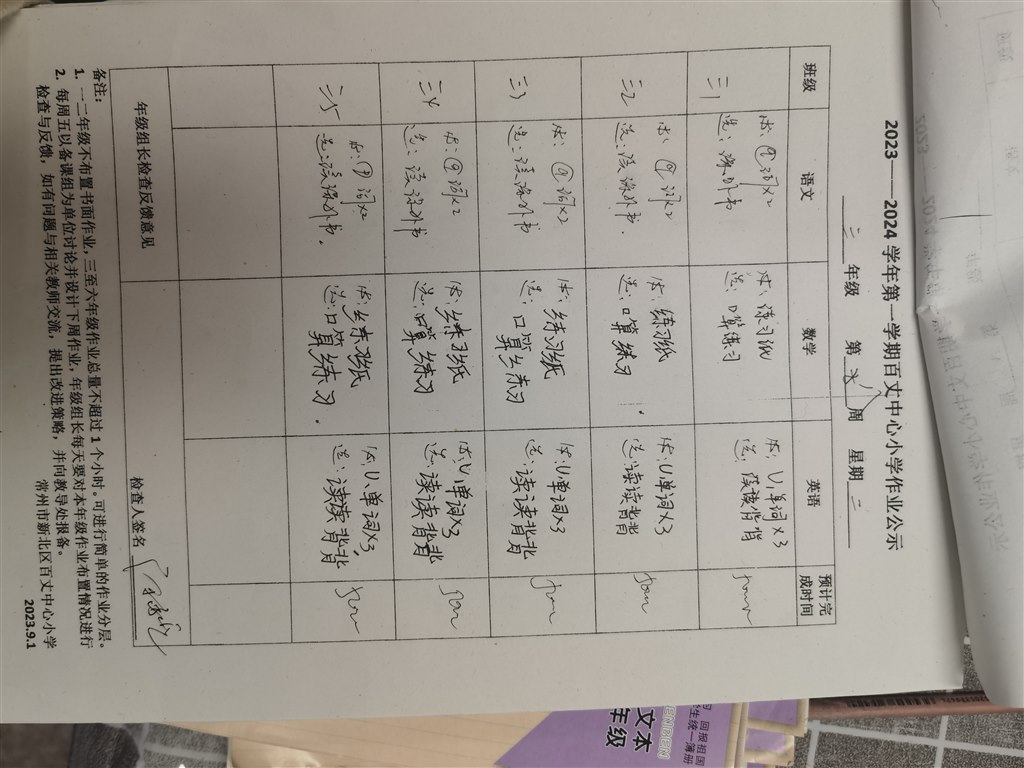 2023——2024学年第一学期百丈中心小学作业公示
三 年级 第 周 星期 二
班级 语文 数学 英语 预计完成时间
三1
必:④词x2
选:课外书
必:练习纸
选:口算练习
必:U1单词x3
选:读读背背
三2
必:④词x2
选:读课外书.
必:练习纸
选:口算练习.
必:U1单词x3
选:读读背背
三3
必:④词x2
选:读课外书
必:练习纸
选:口算练习
必:U1单词x3
选:读读背背
三4
必:④词x2
选:读课外书
必:练习纸
选:口算练习
必:U1单词x3
选:读读背背
三5
必:④词x2
选:读课外书.
必:练习纸
选:口算练习.
必:U1单词x3
选:读读背背
年级组长检查反馈意见
检查人签名
备注:
1. 一二年级不布置书面作业,三至六年级作业总量不超过1个小时。可进行简单的作业分层。
2. 每周五以备课组为单位讨论并设计下周作业,年级组长每天要对本年级作业布置情况进行
检查与反馈,如有问题与相关教师交流,提出改进策略,并向教导处报备。
常州市新北区百丈中心小学
2023.9.1
回报祖国
生统一簿册
文本
年级